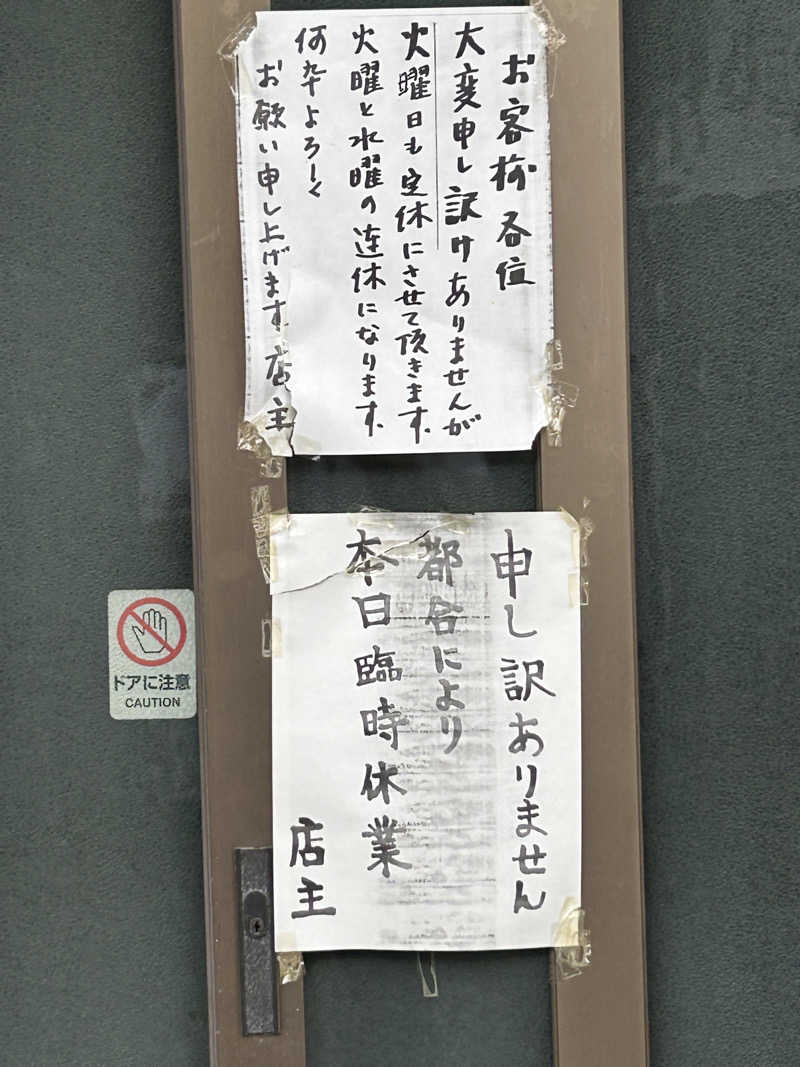 お客様各位
大変申し訳けありませんが
火曜日も定休にさせて頂きます。
火曜と水曜の連休になります。
何卒よろしく
お願い申し上げます 店主
申し訳ありません
都合により
本日臨時休業
店主
ドアに注意
CAUTION